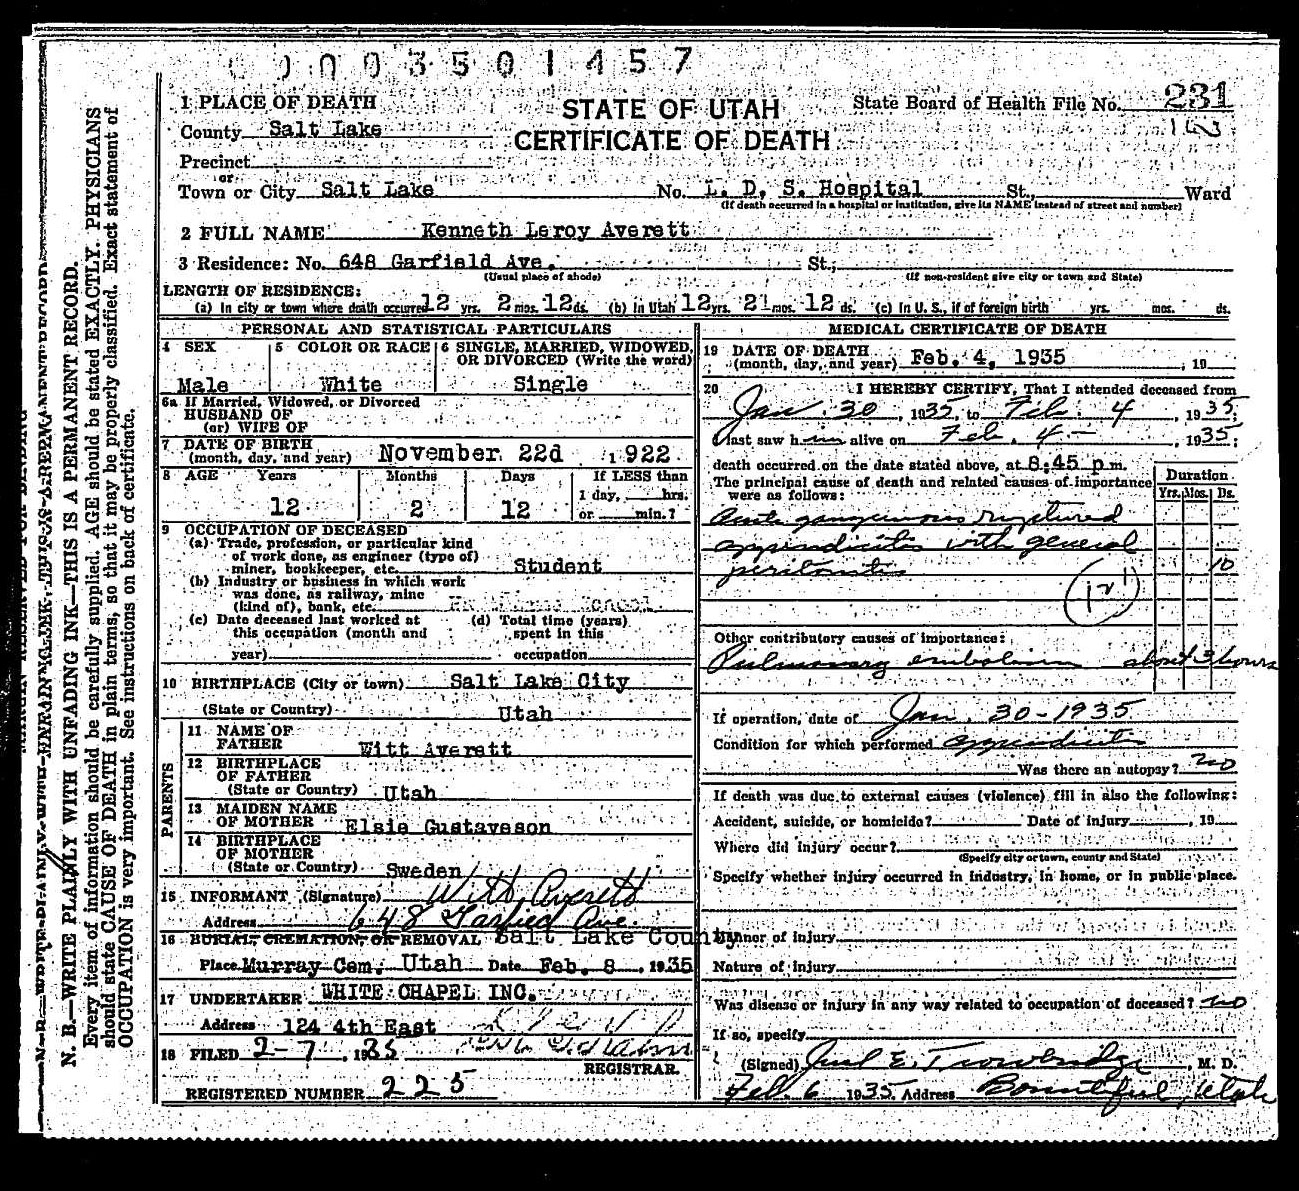 0003501457
1 PLACE OF DEATH
STATE OF UTAH
CERTIFICATE OF DEATH
State Board of Health File No. 231
163
County Salt Lake
Precinct
or
Town or City Salt Lake No. L. D. S. Hospital St., Ward
(If death occurred in a hospital or institution, give its NAME instead of street and number)
2 FULL NAME Kenneth Leroy Averett
3 Residence: No. 648 Garfield Ave. St.,
(Usual place of abode) (If non-resident give city or town and State)
LENGTH OF RESIDENCE:
(a) In city or town where death occurred 12 yrs. 2 mos. 12 ds. (b) In Utah 12 yrs. 2 mos. 12 ds. (c) In U. S., if of foreign birth yrs. mos. ds.
PERSONAL AND STATISTICAL PARTICULARS
4 SEX 5 COLOR OR RACE 6 SINGLE, MARRIED, WIDOWED, OR DIVORCED (Write the word)
Male White Single
6a If Married, Widowed, or Divorced
HUSBAND OF
(or) WIFE OF
7 DATE OF BIRTH
(month, day, and year) November 22d 1922
8 AGE Years Months Days If LESS than
1 day, hrs.
12 2 12 or min.?
9 OCCUPATION OF DECEASED
(a) Trade, profession, or particular kind
of work done, as engineer (type of)
miner, bookkeeper, etc. Student
(b) Industry or business in which work
was done, as railway, mine
(kind of), bank, etc. School
(c) Date deceased last worked at
this occupation (month and
year)
(d) Total time (years)
spent in this
occupation
10 BIRTHPLACE (City or town) Salt Lake City
(State or Country) Utah
PARENTS
11 NAME OF
FATHER Witt Averett
12 BIRTHPLACE
OF FATHER
(State or Country) Utah
13 MAIDEN NAME
OF MOTHER Elsie Gustaveson
14 BIRTHPLACE
OF MOTHER
(State or Country) Sweden
15 INFORMANT (Signature) Witt Averett
Address 648 Garfield Ave.
16 BURIAL, CREMATION, OR REMOVAL Salt Lake County
Place Murray Cem. Utah Date Feb. 8, 1935
17 UNDERTAKER WHITE CHAPEL INC.
Address 124 4th East
18 FILED 2-7, 1935
REGISTRAR.
REGISTERED NUMBER 225
MEDICAL CERTIFICATE OF DEATH
19 DATE OF DEATH
(month, day, and year) Feb. 4, 1935, 19
20 I HEREBY CERTIFY, That I attended deceased from
Jan. 30, 1935, to Feb. 4, 1935;
I last saw him alive on Feb. 4 -, 1935;
death occurred on the date stated above, at 8:45 p m.
The principal cause of death and related causes of importance
were as follows:
Duration
Yrs. Mos. Ds.
Acute gangrenous ruptured
appendicitis with general
peritonitis 10
121
Other contributory causes of importance:
Pulmonary embolism about 3 hours
If operation, date of Jan. 30-1935
Condition for which performed appendicitis
Was there an autopsy? no
If death was due to external causes (violence) fill in also the following:
Accident, suicide, or homicide? Date of injury, 19
Where did injury occur?
(Specify city or town, county and State)
Specify whether injury occurred in industry, in home, or in public place.
Manner of injury
Nature of injury
Was disease or injury in any way related to occupation of deceased? no
If so, specify
(Signed) E. Trowbridge, M. D.
Feb. 6 1935 Address Bountiful, Utah
N. B.—WRITE PLAINLY WITH UNFADING INK—THIS IS A PERMANENT RECORD.
Every item of information should be carefully supplied. AGE should be stated EXACTLY. PHYSICIANS
should state CAUSE OF DEATH in plain terms, so that it may be properly classified. Exact statement of
OCCUPATION is very important. See instructions on back of certificate.